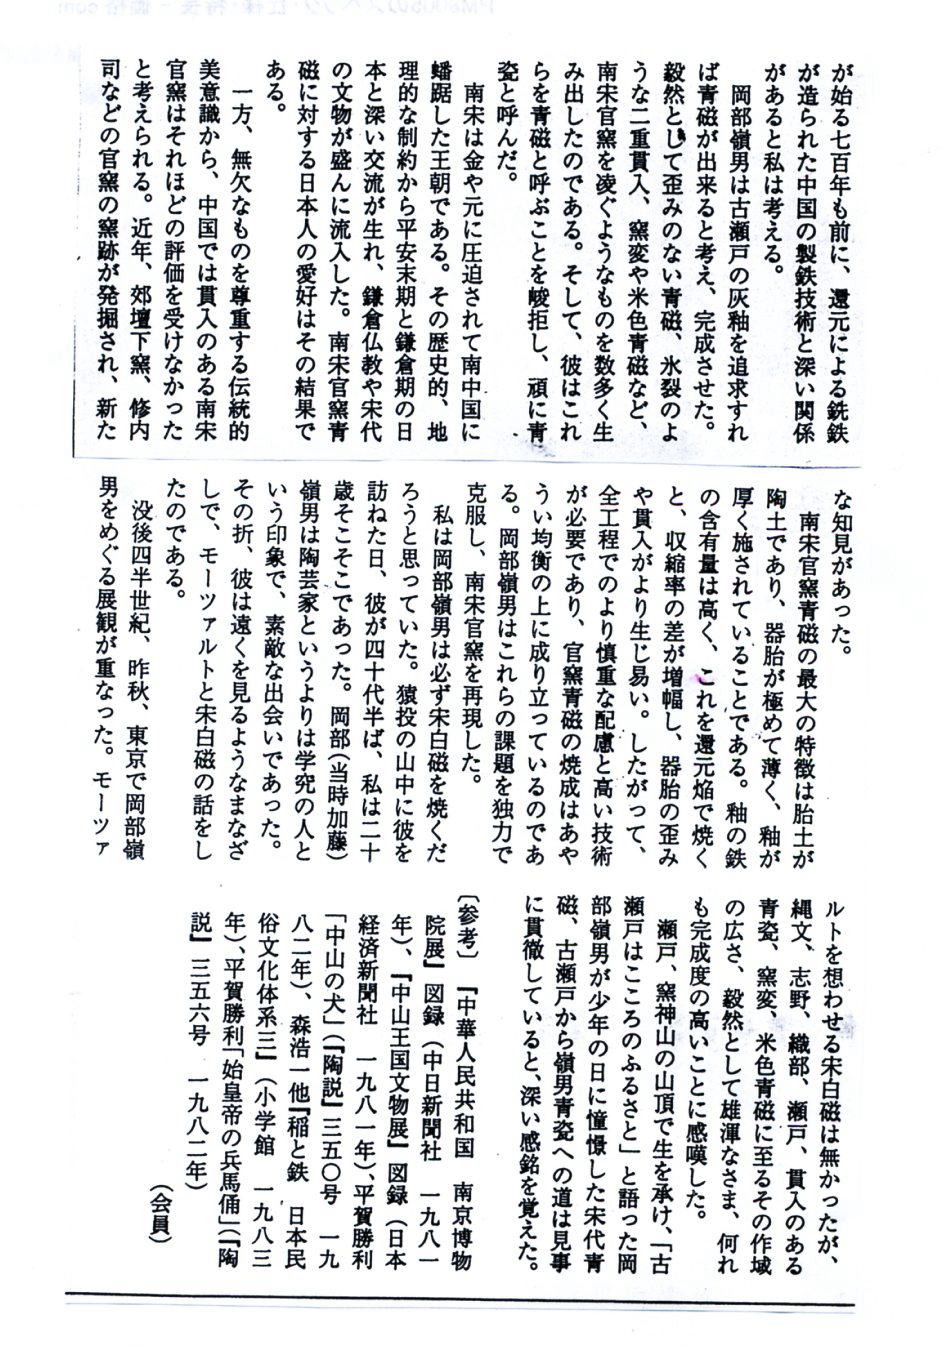 が始る七百年も前に、還元による銑鉄
が造られた中国の製鉄技術と深い関係
があると私は考える。
岡部嶺男は古瀬戸の灰釉を追求すれ
ば青磁が出来ると考え、完成させた。
毅然として歪みのない青磁、氷裂のよ
うな二重貫入、窯変や米色青磁など、
南宋官窯を凌ぐようなものを数多く生
み出したのである。そして、彼はこれ
らを青磁と呼ぶことを峻拒し、頑に青
瓷と呼んだ。
南宋は金や元に圧迫されて南中国に
蟠踞した王朝である。その歴史的、地
理的な制約から平安末期と鎌倉期の日
本と深い交流が生れ、鎌倉仏教や宋代
の文物が盛んに流入した。南宋官窯青
磁に対する日本人の愛好はその結果で
ある。
一方、無欠なものを尊重する伝統的
美意識から、中国では貫入のある南宋
官窯はそれほどの評価を受けなかった
と考えられる。近年、郊壇下窯、修内
司などの官窯の窯跡が発掘され、新た
な知見があった。
南宋官窯青磁の最大の特徴は胎土が
陶土であり、器胎が極めて薄く、釉が
厚く施されていることである。釉の鉄
の含有量は高く、これを還元焔で焼く
と、収縮率の差が増幅し、器胎の歪み
や貫入がより生じ易い。したがって、
全工程でのより慎重な配慮と高い技術
が必要であり、官窯青磁の焼成はあや
うい均衡の上に成り立っているのであ
る。岡部嶺男はこれらの課題を独力で
克服し、南宋官窯を再現した。
私は岡部嶺男は必ず宋白磁を焼くだ
ろうと思っていた。猿投の山中に彼を
訪ねた日、彼が四十代半ば、私は二十
歳そこそこであった。岡部(当時加藤)
嶺男は陶芸家というよりは学究の人と
いう印象で、素敵な出会いであった。
その折、彼は遠くを見るようなまなざ
しで、モーツァルトと宋白磁の話をし
たのである。
没後四半世紀、昨秋、東京で岡部嶺
男をめぐる展観が重なった。モーツァ
ルトを想わせる宋白磁は無かったが、
縄文、志野、織部、瀬戸、貫入のある
青瓷、窯変、米色青磁に至るその作域
の広さ、毅然として雄渾なさま、何れ
も完成度の高いことに感嘆した。
瀬戸、窯神山の山頂で生を承け、「古
瀬戸はこころのふるさと」と語った岡
部嶺男が少年の日に憧憬した宋代青
磁、古瀬戸から嶺男青瓷への道は見事
に貫徹していると、深い感銘を覚えた。
〔参考〕『中華人民共和国 南京博物
院展』図録(中日新聞社 一九八一
年)、『中山王国文物展』図録(日本
経済新聞社 一九八一年)、平賀勝利
「中山の犬」(『陶説』三五〇号 一九
八二年)、森浩一他『稲と鉄 日本民
俗文化体系三』(小学館 一九八三
年)、平賀勝利「始皇帝の兵馬俑」(『陶
説』三五六号 一九八二年)
(会員)